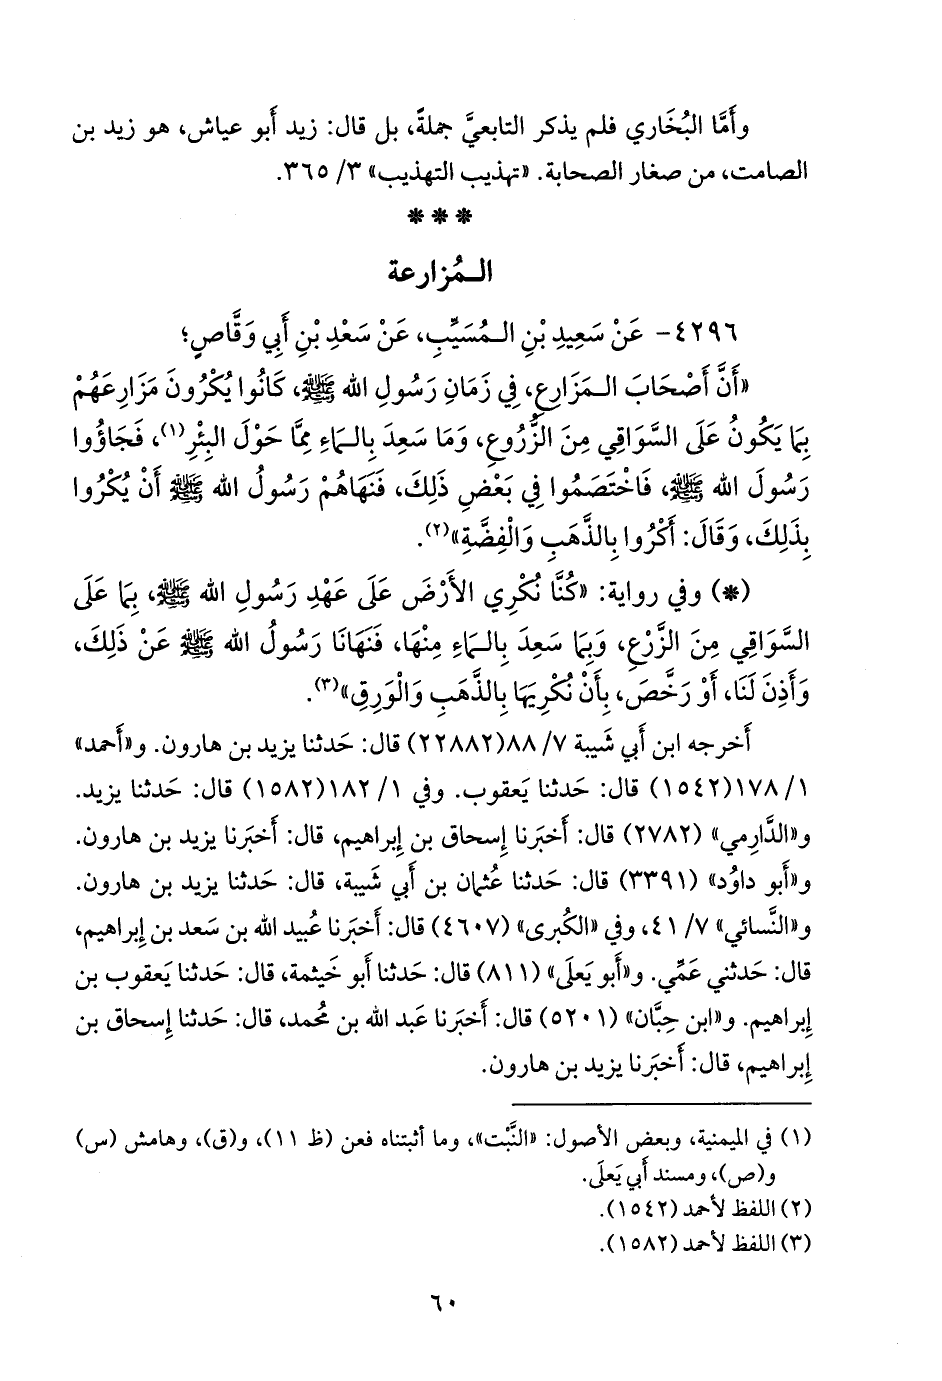 وأَمَّا البُخَاري فلم يذكر التابعيَّ جملةً، بل قال: زيد أَبو عياش، هو زيد بن
الصامت، من صغار الصحابة. «تهذيب التهذيب» ٣/ ٣٦٥.
***
الـمُزارعة
٤٢٩٦- عَنْ سَعِيدِ بْنِ الـمُسَيِّبِ، عَنْ سَعْدِ بْنِ أَبِي وَقَّاصٍ؛
«أَنَّ أَصْحَابَ الـمَزَارِعِ، فِي زَمَانِ رَسُولِ الله ﷺ، كَانُوا يُكْرُونَ مَزَارِعَهُمْ
بِمَا يَكُونُ عَلَى السَّوَاقِي مِنَ الزُّرُوعِ، وَمَا سَعِدَ بِالـمَاءِ مِمَّا حَوْلَ البِئْرِ(١)، فَجَاؤُوا
رَسُولَ الله ﷺ، فَاخْتَصَمُوا فِي بَعْضِ ذَلِكَ، فَنَهَاهُمْ رَسُولُ الله ﷺ أَنْ يُكْرُوا
بِذَلِكَ، وَقَالَ: أَكْرُوا بِالذَّهَبِ وَالْفِضَّةِ»(٢).
(*) وفي رواية: «كُنَّا نُكْرِي الأَرْضَ عَلَى عَهْدِ رَسُولِ الله ﷺ، بِمَا عَلَى
السَّوَاقِي مِنَ الزَّرْعِ، وَبِمَا سَعِدَ بِالـمَاءِ مِنْهَا، فَنَهَانَا رَسُولُ الله ﷺ عَنْ ذَلِكَ،
وَأَذِنَ لَنَا، أَوْ رَخَّصَ، بِأَنْ نُكْرِيَهَا بِالذَّهَبِ وَالْوَرِقِ»(٣).
أَخرجه ابن أَبي شَيبة ٧/ ٨٨(٢٢٨٨٢) قال: حَدثنا يزيد بن هارون. و«أَحمد»
١/ ١٧٨(١٥٤٢) قال: حَدثنا يَعقوب. وفي ١/ ١٨٢(١٥٨٢) قال: حَدثنا يزيد.
و«الدَّارِمي» (٢٧٨٢) قال: أَخبَرنا إِسحاق بن إِبراهيم، قال: أَخبَرنا يزيد بن هارون.
و«أَبو داوُد» (٣٣٩١) قال: حَدثنا عُثمان بن أَبي شَيبة، قال: حَدثنا يزيد بن هارون.
و«النَّسائي» ٧/ ٤١، وفي «الكُبرى» (٤٦٠٧) قال: أَخبَرنا عُبيد الله بن سَعد بن إِبراهيم،
قال: حَدثني عَمِّي. و«أَبو يَعلَى» (٨١١) قال: حَدثنا أَبو خَيثمة، قال: حَدثنا يَعقوب بن
إِبراهيم. و«ابن حِبَّان» (٥٢٠١) قال: أَخبَرنا عَبد الله بن مُحمد، قال: حَدثنا إِسحاق بن
إِبراهيم، قال: أَخبَرنا يزيد بن هارون.
(١) في الميمنية، وبعض الأصول: «النَّبْت»، وما أثبتناه فعن (ظ ١١)، و(ق)، وهامش (س)
و(ص)، ومسند أَبي يَعلَى.
(٢) اللفظ لأحمد (١٥٤٢).
(٣) اللفظ لأحمد (١٥٨٢).
٦٠